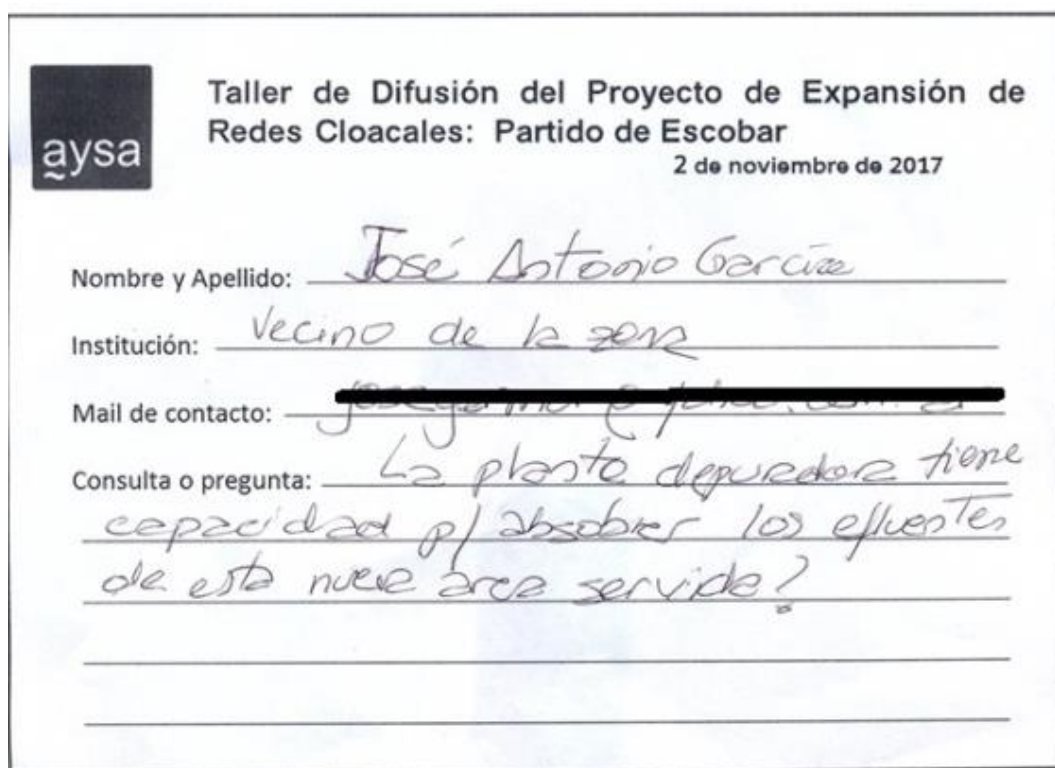 aysa
Taller de Difusión del Proyecto de Expansión de
Redes Cloacales: Partido de Escobar
2 de noviembre de 2017
Nombre y Apellido: José Antonio García
Institución: Vecino de la zona
Mail de contacto:
Consulta o pregunta: La planta depuradora tiene
capacidad p/ absober los efluentes
de esta nueva área servida?